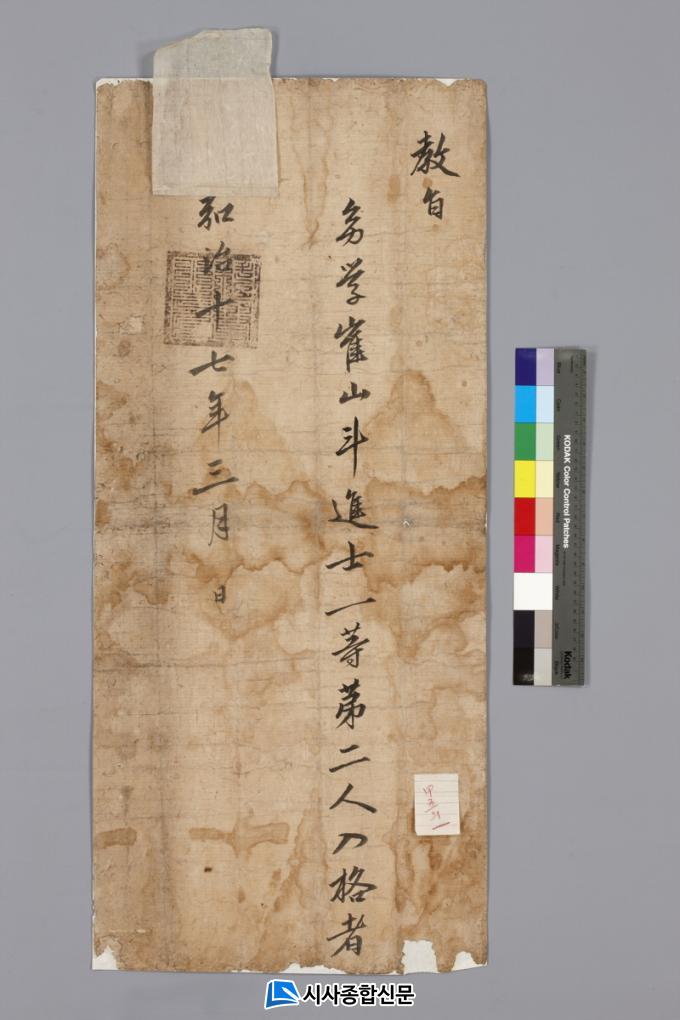 教旨
幼学崔山斗進士一等第二人入格者
弘治十七年三月 日
KODAK Color Control Patches
Kodak
시사종합신문